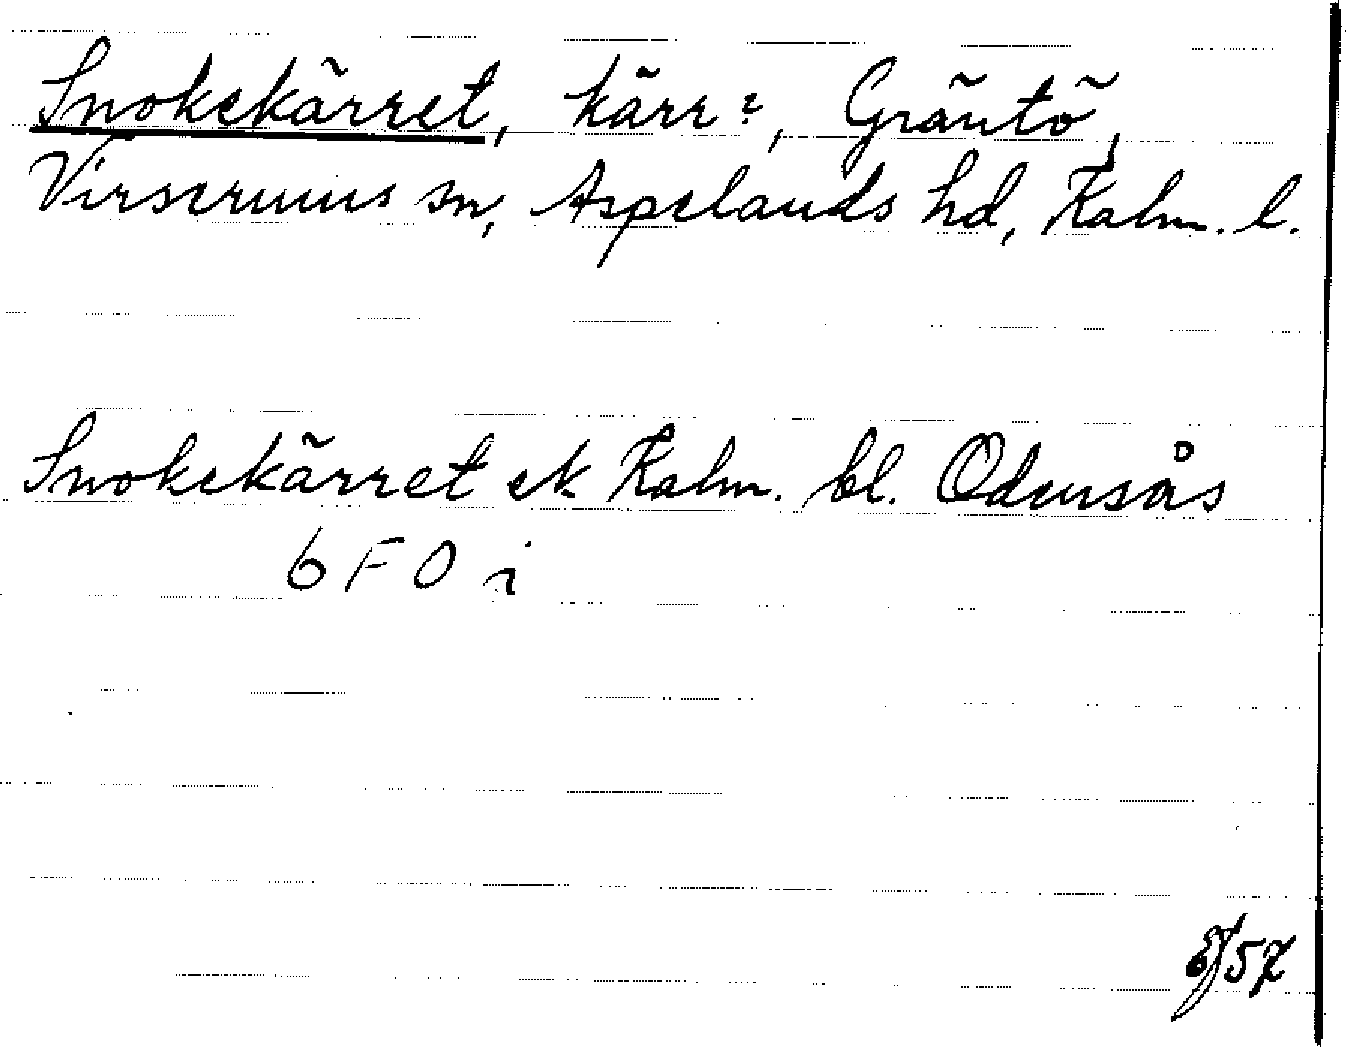 Snokekärret, kärr?, Gräntö,
Virserums sn, Aspelands hd, Kalm. l.
Snokekärret ek Kalm. bl. Odensås
6 F 0 i
57